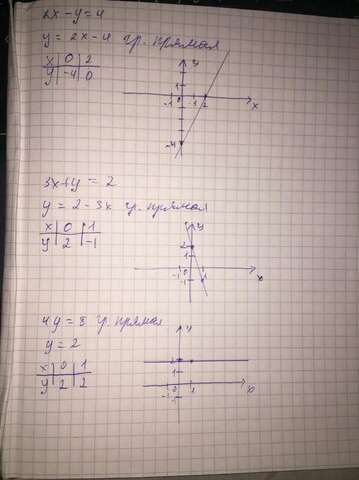 2x - y = 4
y = 2x - 4 гр. прямая
x | 0 | 2
y | -4 | 0
y
1
-1 0 1 2 x
-4
3x + y = 2
y = 2 - 3x гр. прямая
x | 0 | 1
y | 2 | -1
y
2
1
1 x
-1
4y = 8 гр. прямая
y = 2
x | 0 | 1
y | 2 | 2
y
2
1
-1 0 1 x
-1